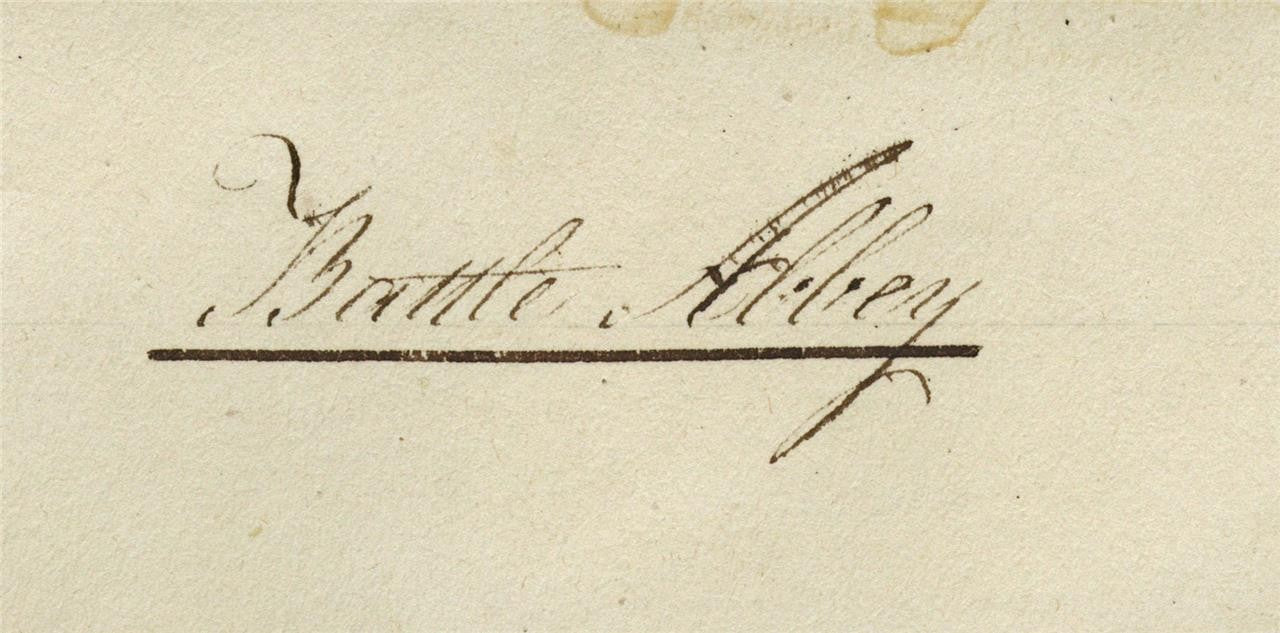 Battle Abbey